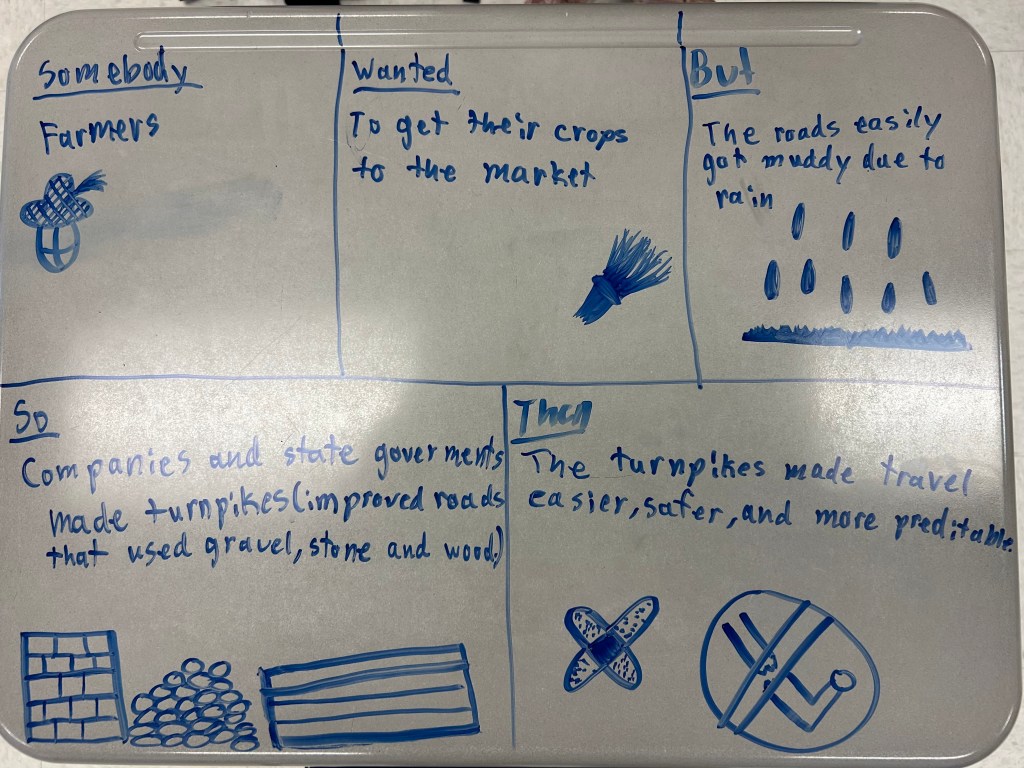 Somebody
Farmers
Wanted
To get their crops
to the market
But
The roads easily
got muddy due to
rain
So
Companies and state goverments
made turnpikes(improved roads
that used gravel, stone and wood.)
Then
The turnpikes made travel
easier, safer, and more preditable.